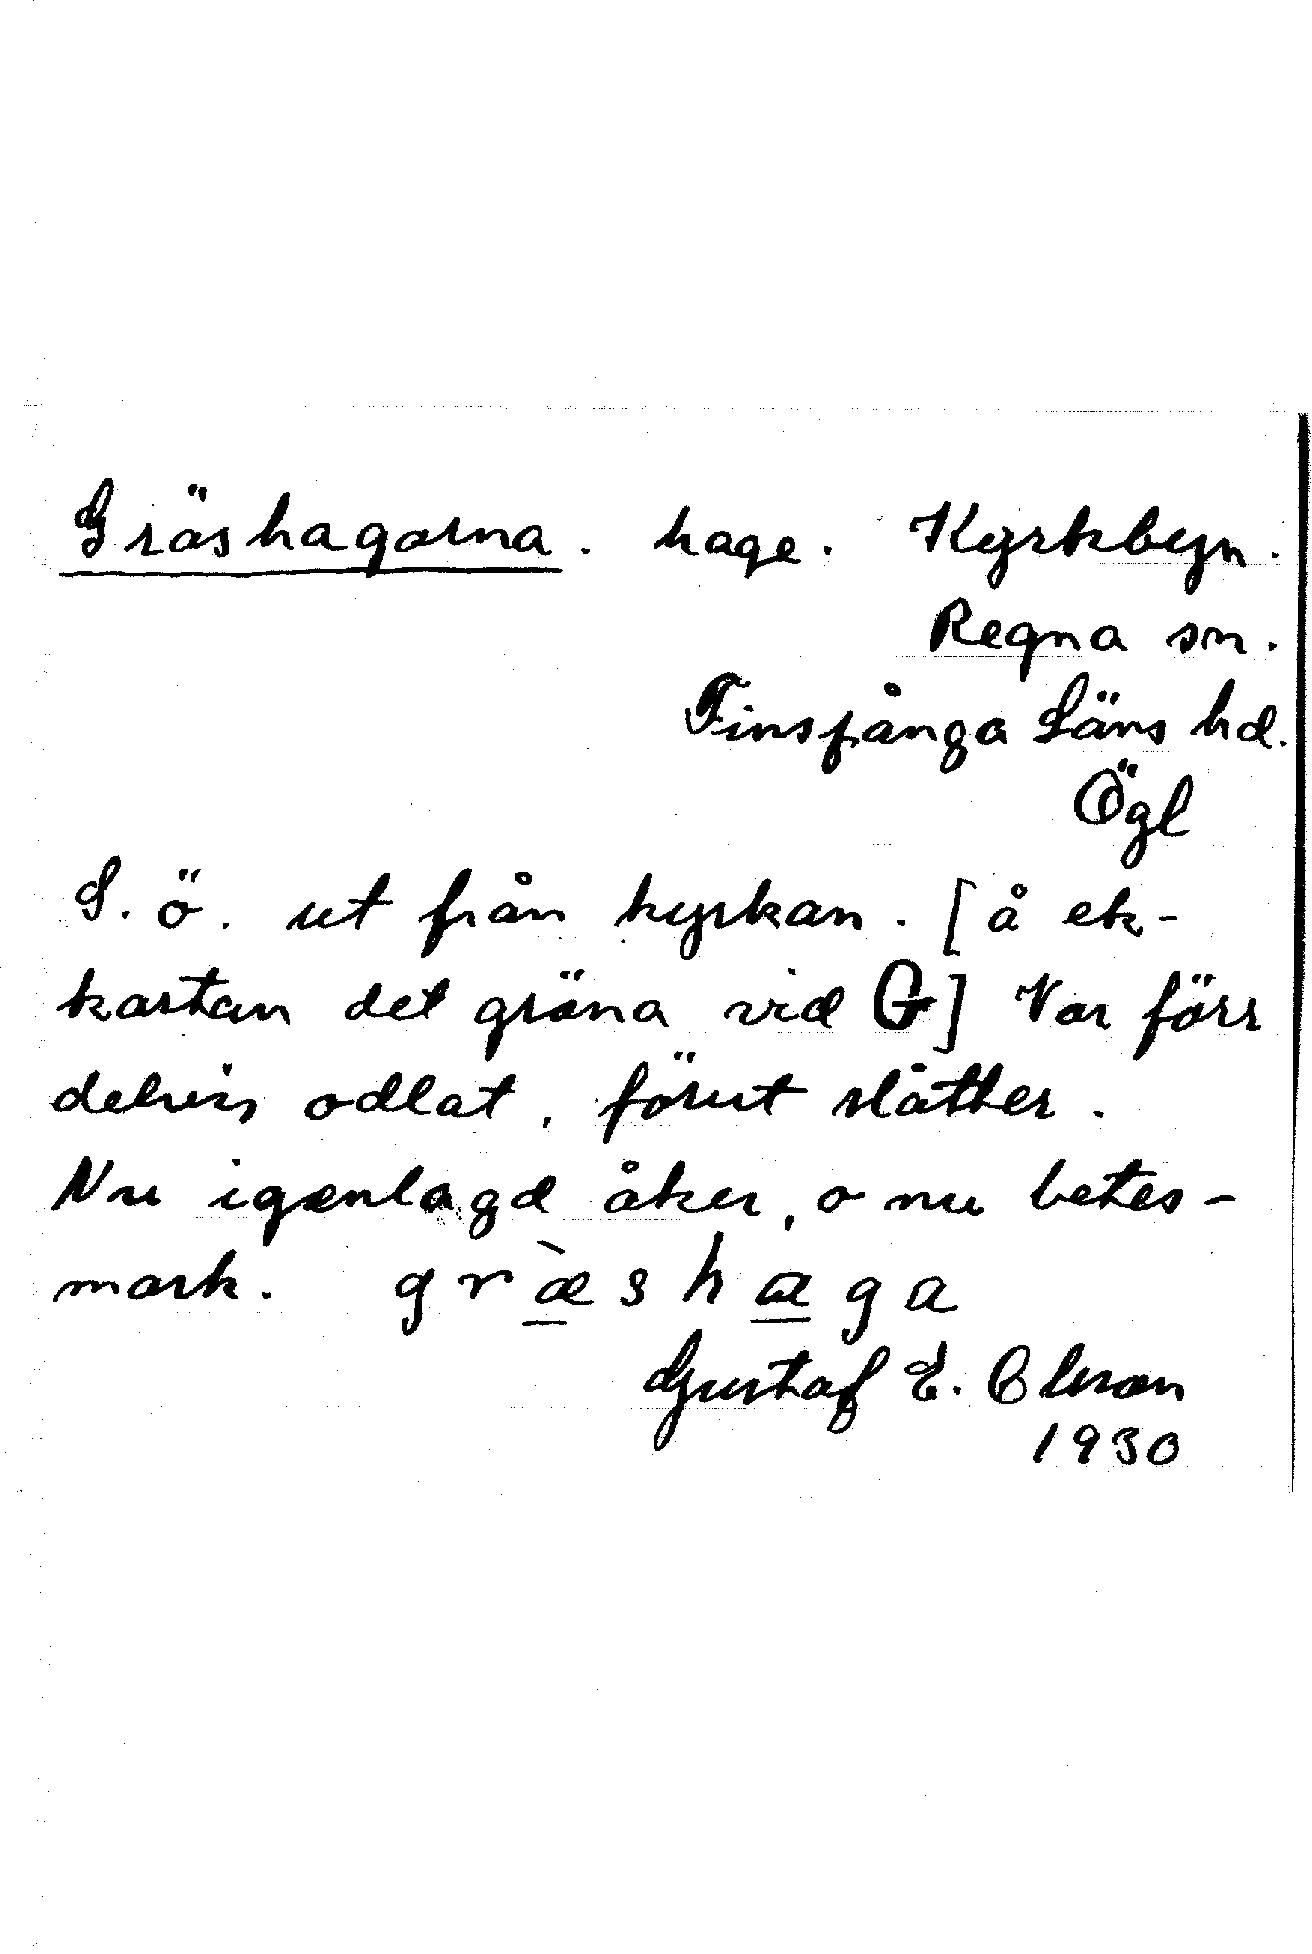 Gräshagarna. hage. Kyrkbyn.
Regna sn.
Finspånga Läns hd.
Ögl
S. ö. ut från kyrkan. [å ek-
kartan det gröna vid G] Var förr
delvis odlat, förut slåtter.
Nu igenlagd åker, o nu betes-
mark. græ̀shaga
Gustaf E. Olsson
1930